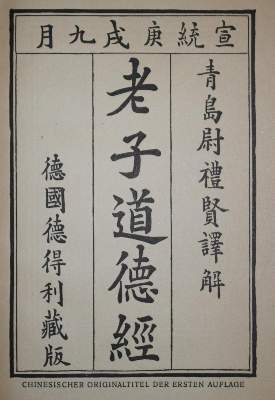 宣統庚戌九月
青島尉禮賢譯解
老子道德經
德國德得利藏版
CHINESISCHER ORIGINALTITEL DER ERSTEN AUFLAGE